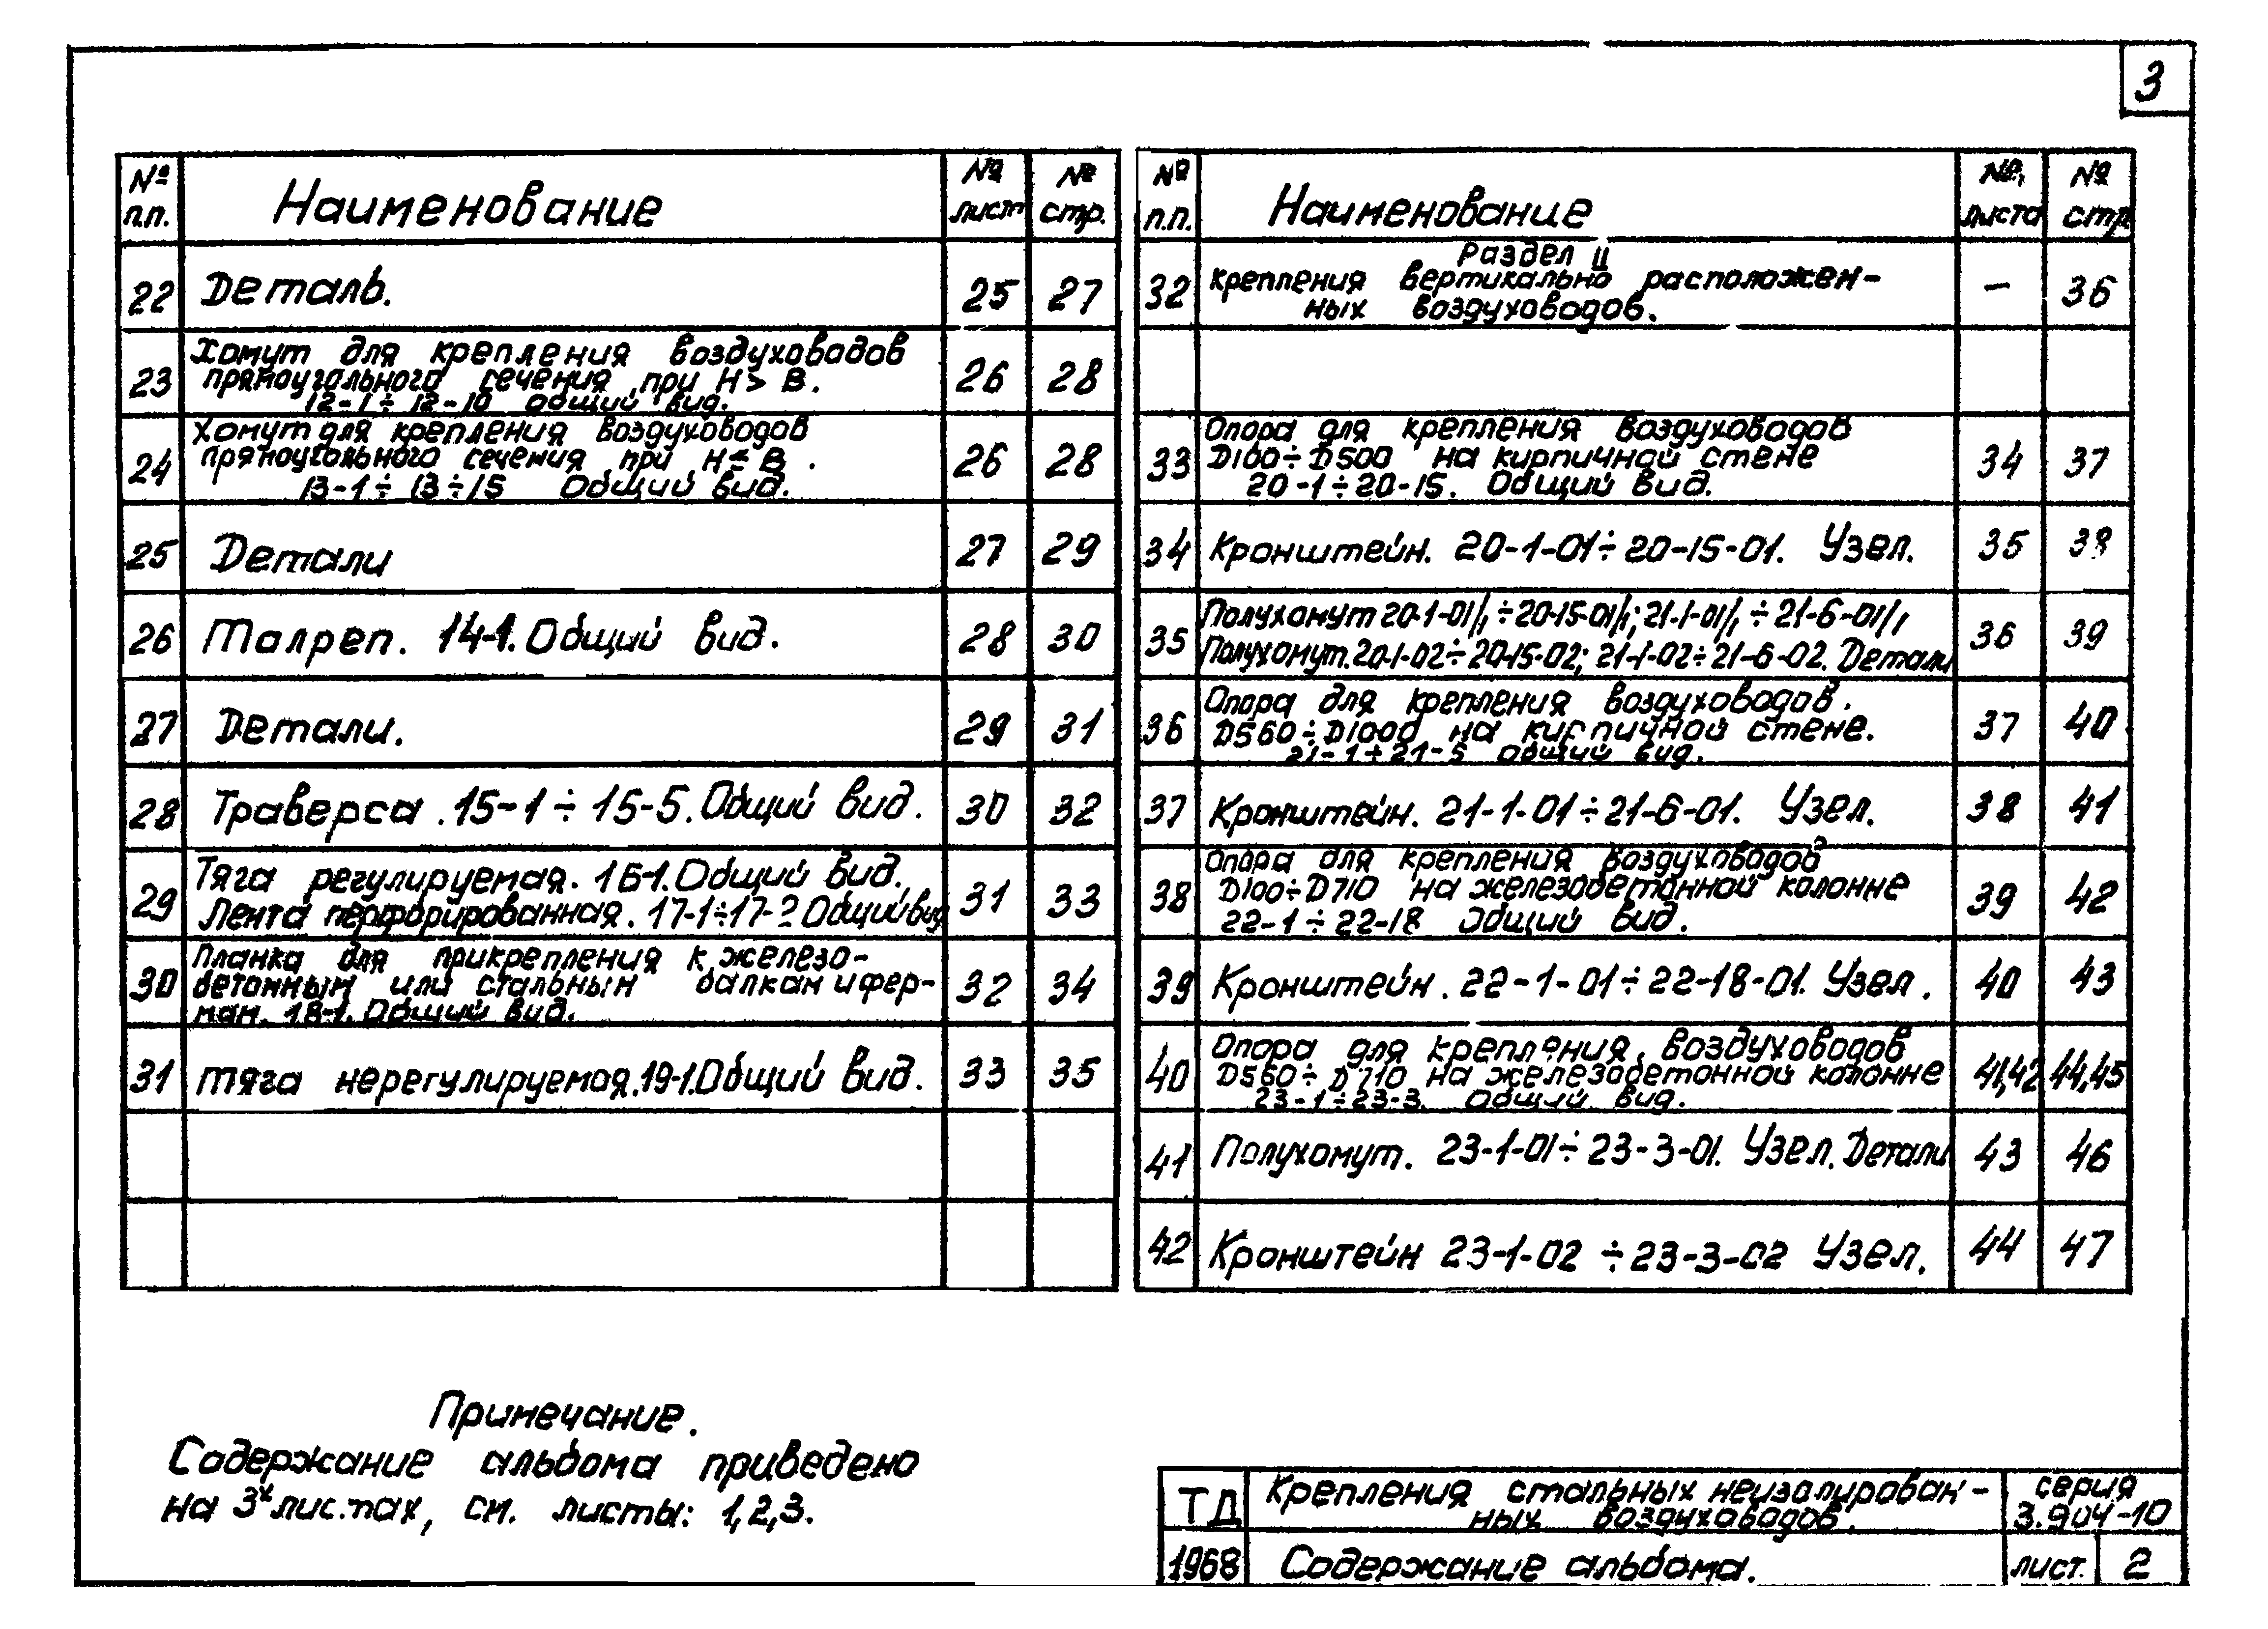 3
№ п.п. Наименование № лист № стр.
22 Деталь. 25 27
23 Хомут для крепления воздуховодов
прямоугольного сечения при H > B.
12-1 ÷ 12-10 общий вид. 26 28
24 Хомут для крепления воздуховодов
прямоугольного сечения при H ≤ B.
13-1 ÷ 13÷15 Общий вид. 26 28
25 Детали 27 29
26 Талреп. 14-1. Общий вид. 28 30
27 Детали. 29 31
28 Траверса. 15-1 ÷ 15-5. Общий вид. 30 32
29 Тяга регулируемая. 16-1. Общий вид.
Лента перфорированная. 17-1÷17-2 Общий вид 31 33
30 Планка для прикрепления к железо-
бетонным или стальным балкам и фер-
мам. 18-1. Общий вид. 32 34
31 Тяга нерегулируемая. 19-1. Общий вид. 33 35
№ п.п. Наименование № листа № стр.
Раздел II
32 крепления вертикально расположен-
ных воздуховодов. – 36
33 Опора для крепления воздуховодов
D100÷D500 на кирпичной стене
20-1÷20-15. Общий вид. 34 37
34 Кронштейн. 20-1-01÷20-15-01. Узел. 35 38
35 Полухомут 20-1-01/1÷20-15-01/1; 21-1-01/1÷21-6-01/1
Полухомут. 20-1-02÷20-15-02; 21-1-02÷21-6-02. Детали 36 39
36 Опора для крепления воздуховодов.
D560÷D1000 на кирпичной стене.
21-1÷21-5 общий вид. 37 40
37 Кронштейн. 21-1-01÷21-6-01. Узел. 38 41
38 Опора для крепления воздуховодов
D100÷D710 на железобетонной колонне
22-1÷22-18 Общий вид. 39 42
39 Кронштейн. 22-1-01÷22-18-01. Узел. 40 43
40 Опора для крепления воздуховодов
D560÷D710 на железобетонной колонне
23-1÷23-3. Общий вид. 41,42 44,45
41 Полухомут. 23-1-01÷23-3-01. Узел. Детали 43 46
42 Кронштейн 23-1-02÷23-3-02 Узел. 44 47
Примечание.
Содержание альбома приведено
на 3х листах, см. листы: 1,2,3.
ТД Крепления стальных неизолирован-
ных воздуховодов. серия
3.904-10
1968 Содержание альбома. лист. 2